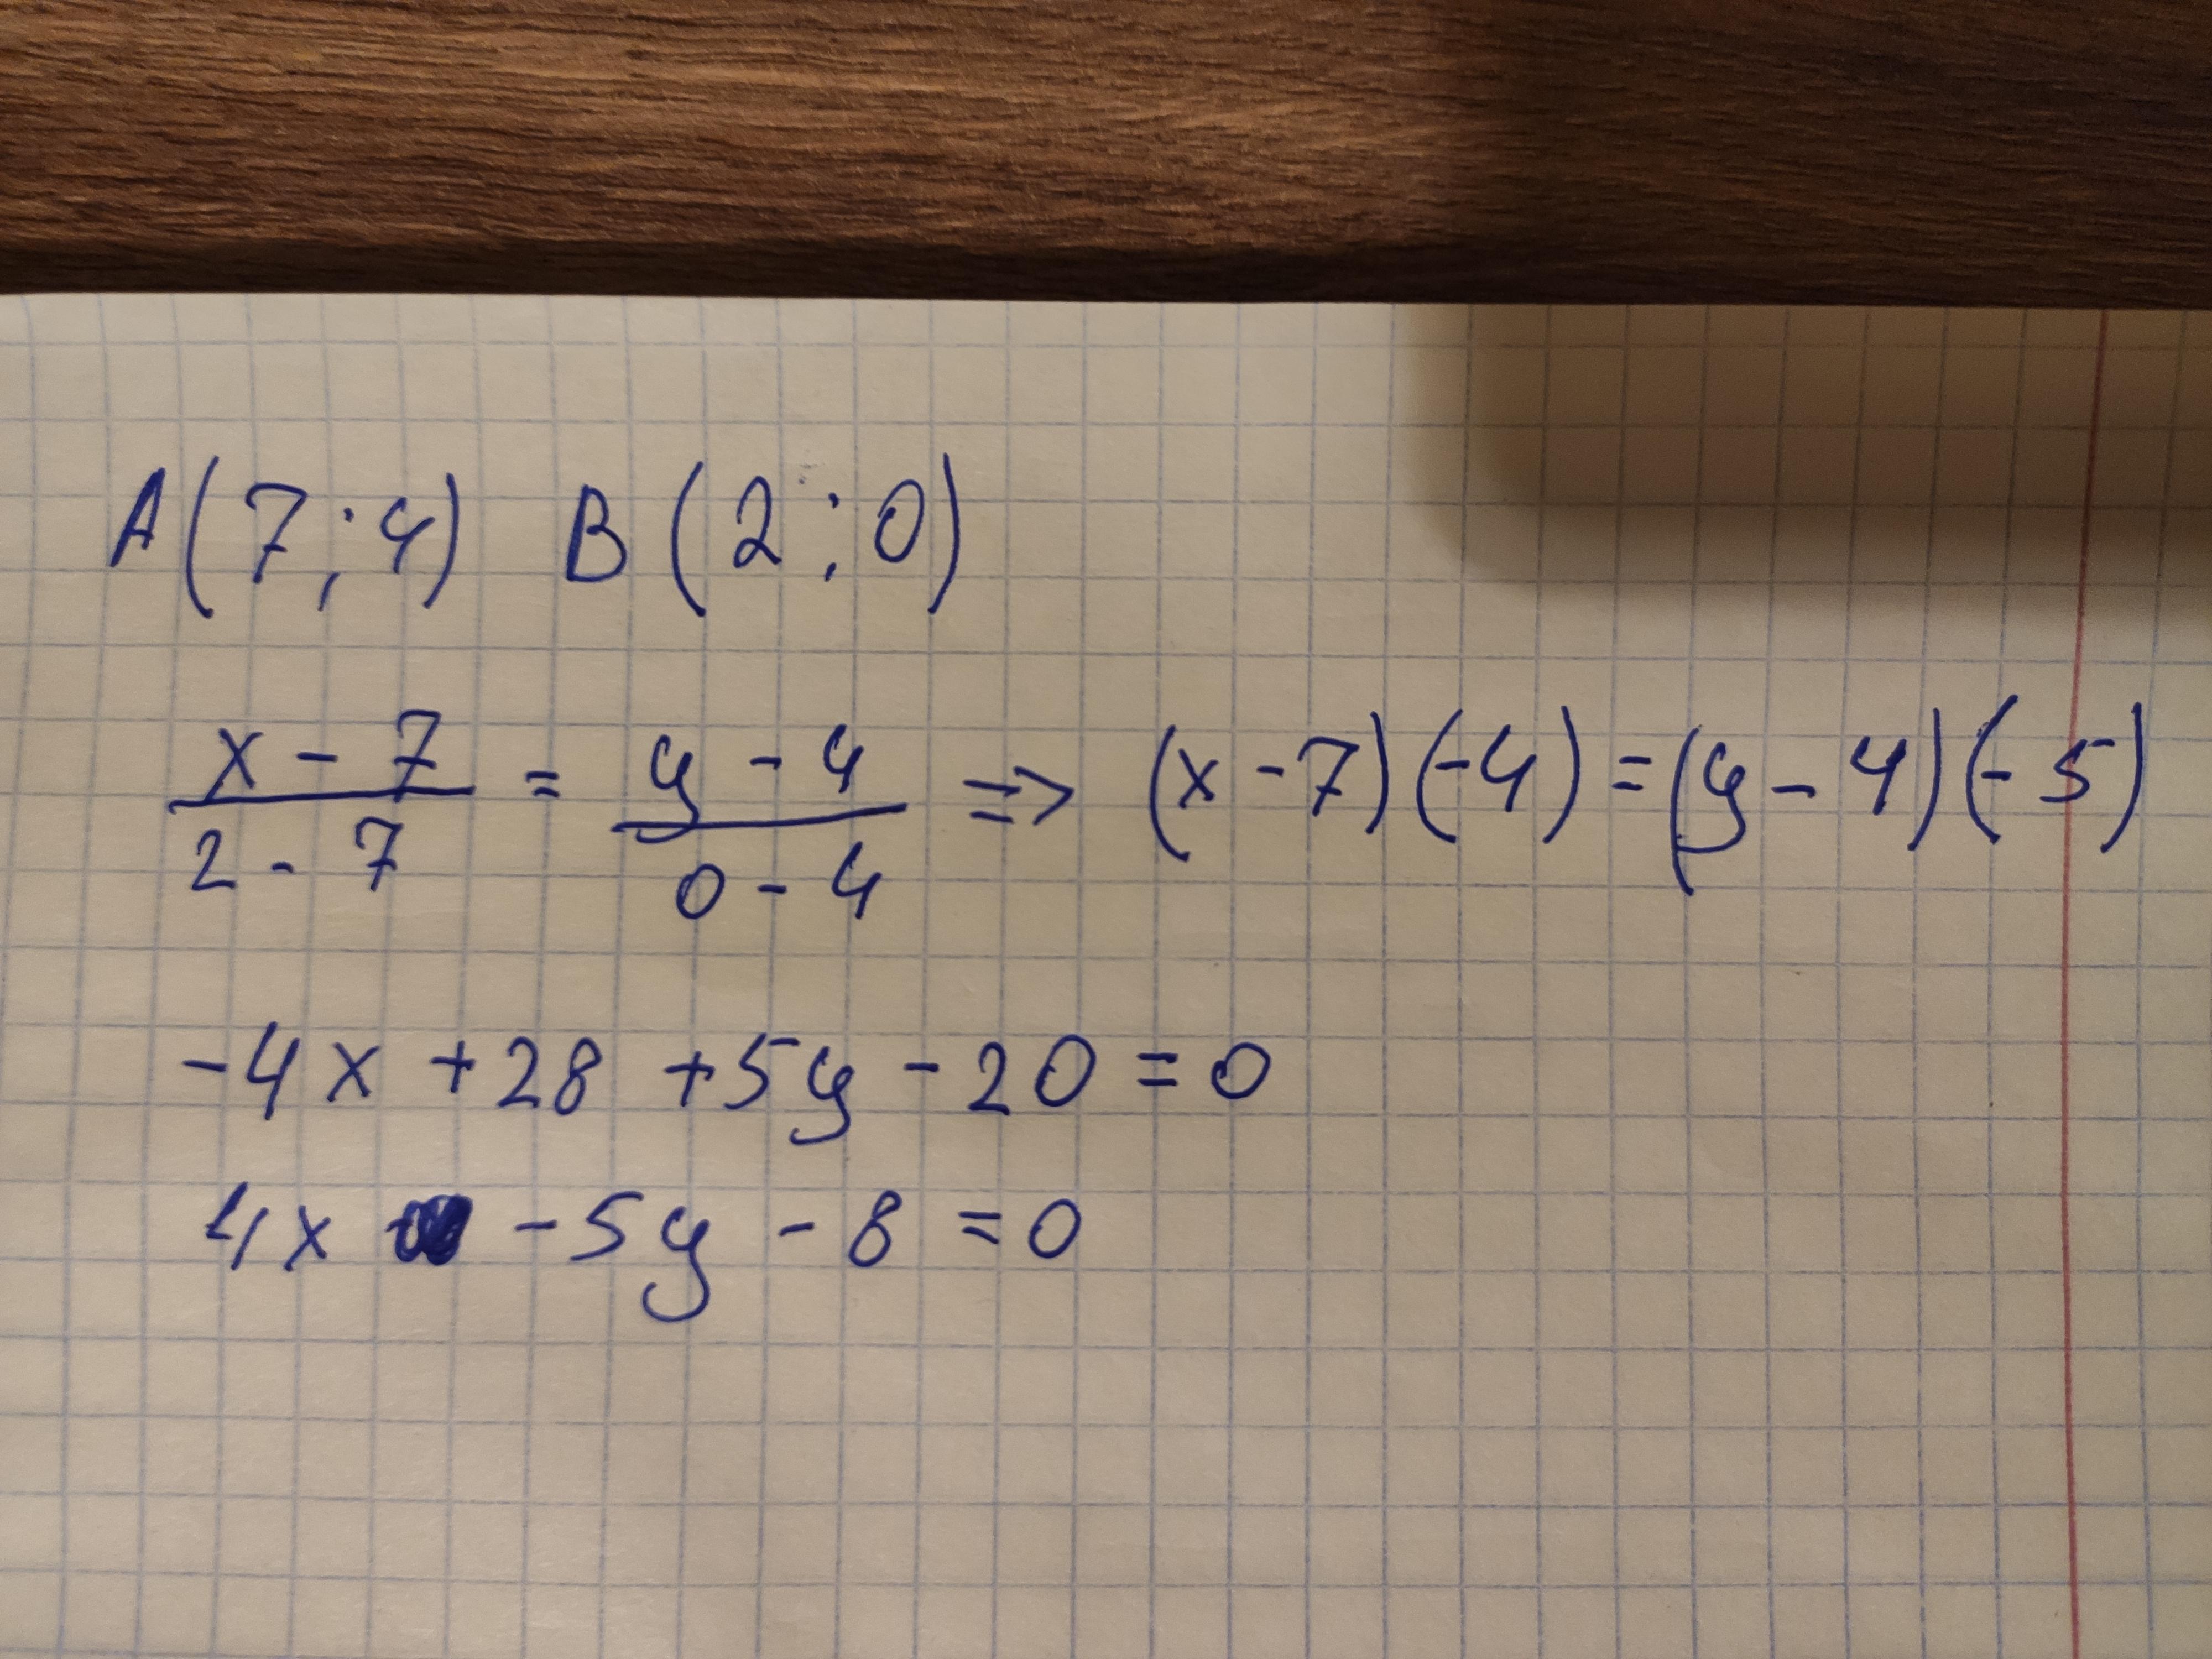 A(7;4) B(2;0)
x-7/2-7 = y-4/0-4 => (x-7)(-4)=(y-4)(-5)
-4x+28+5y-20=0
4x -5y-8=0